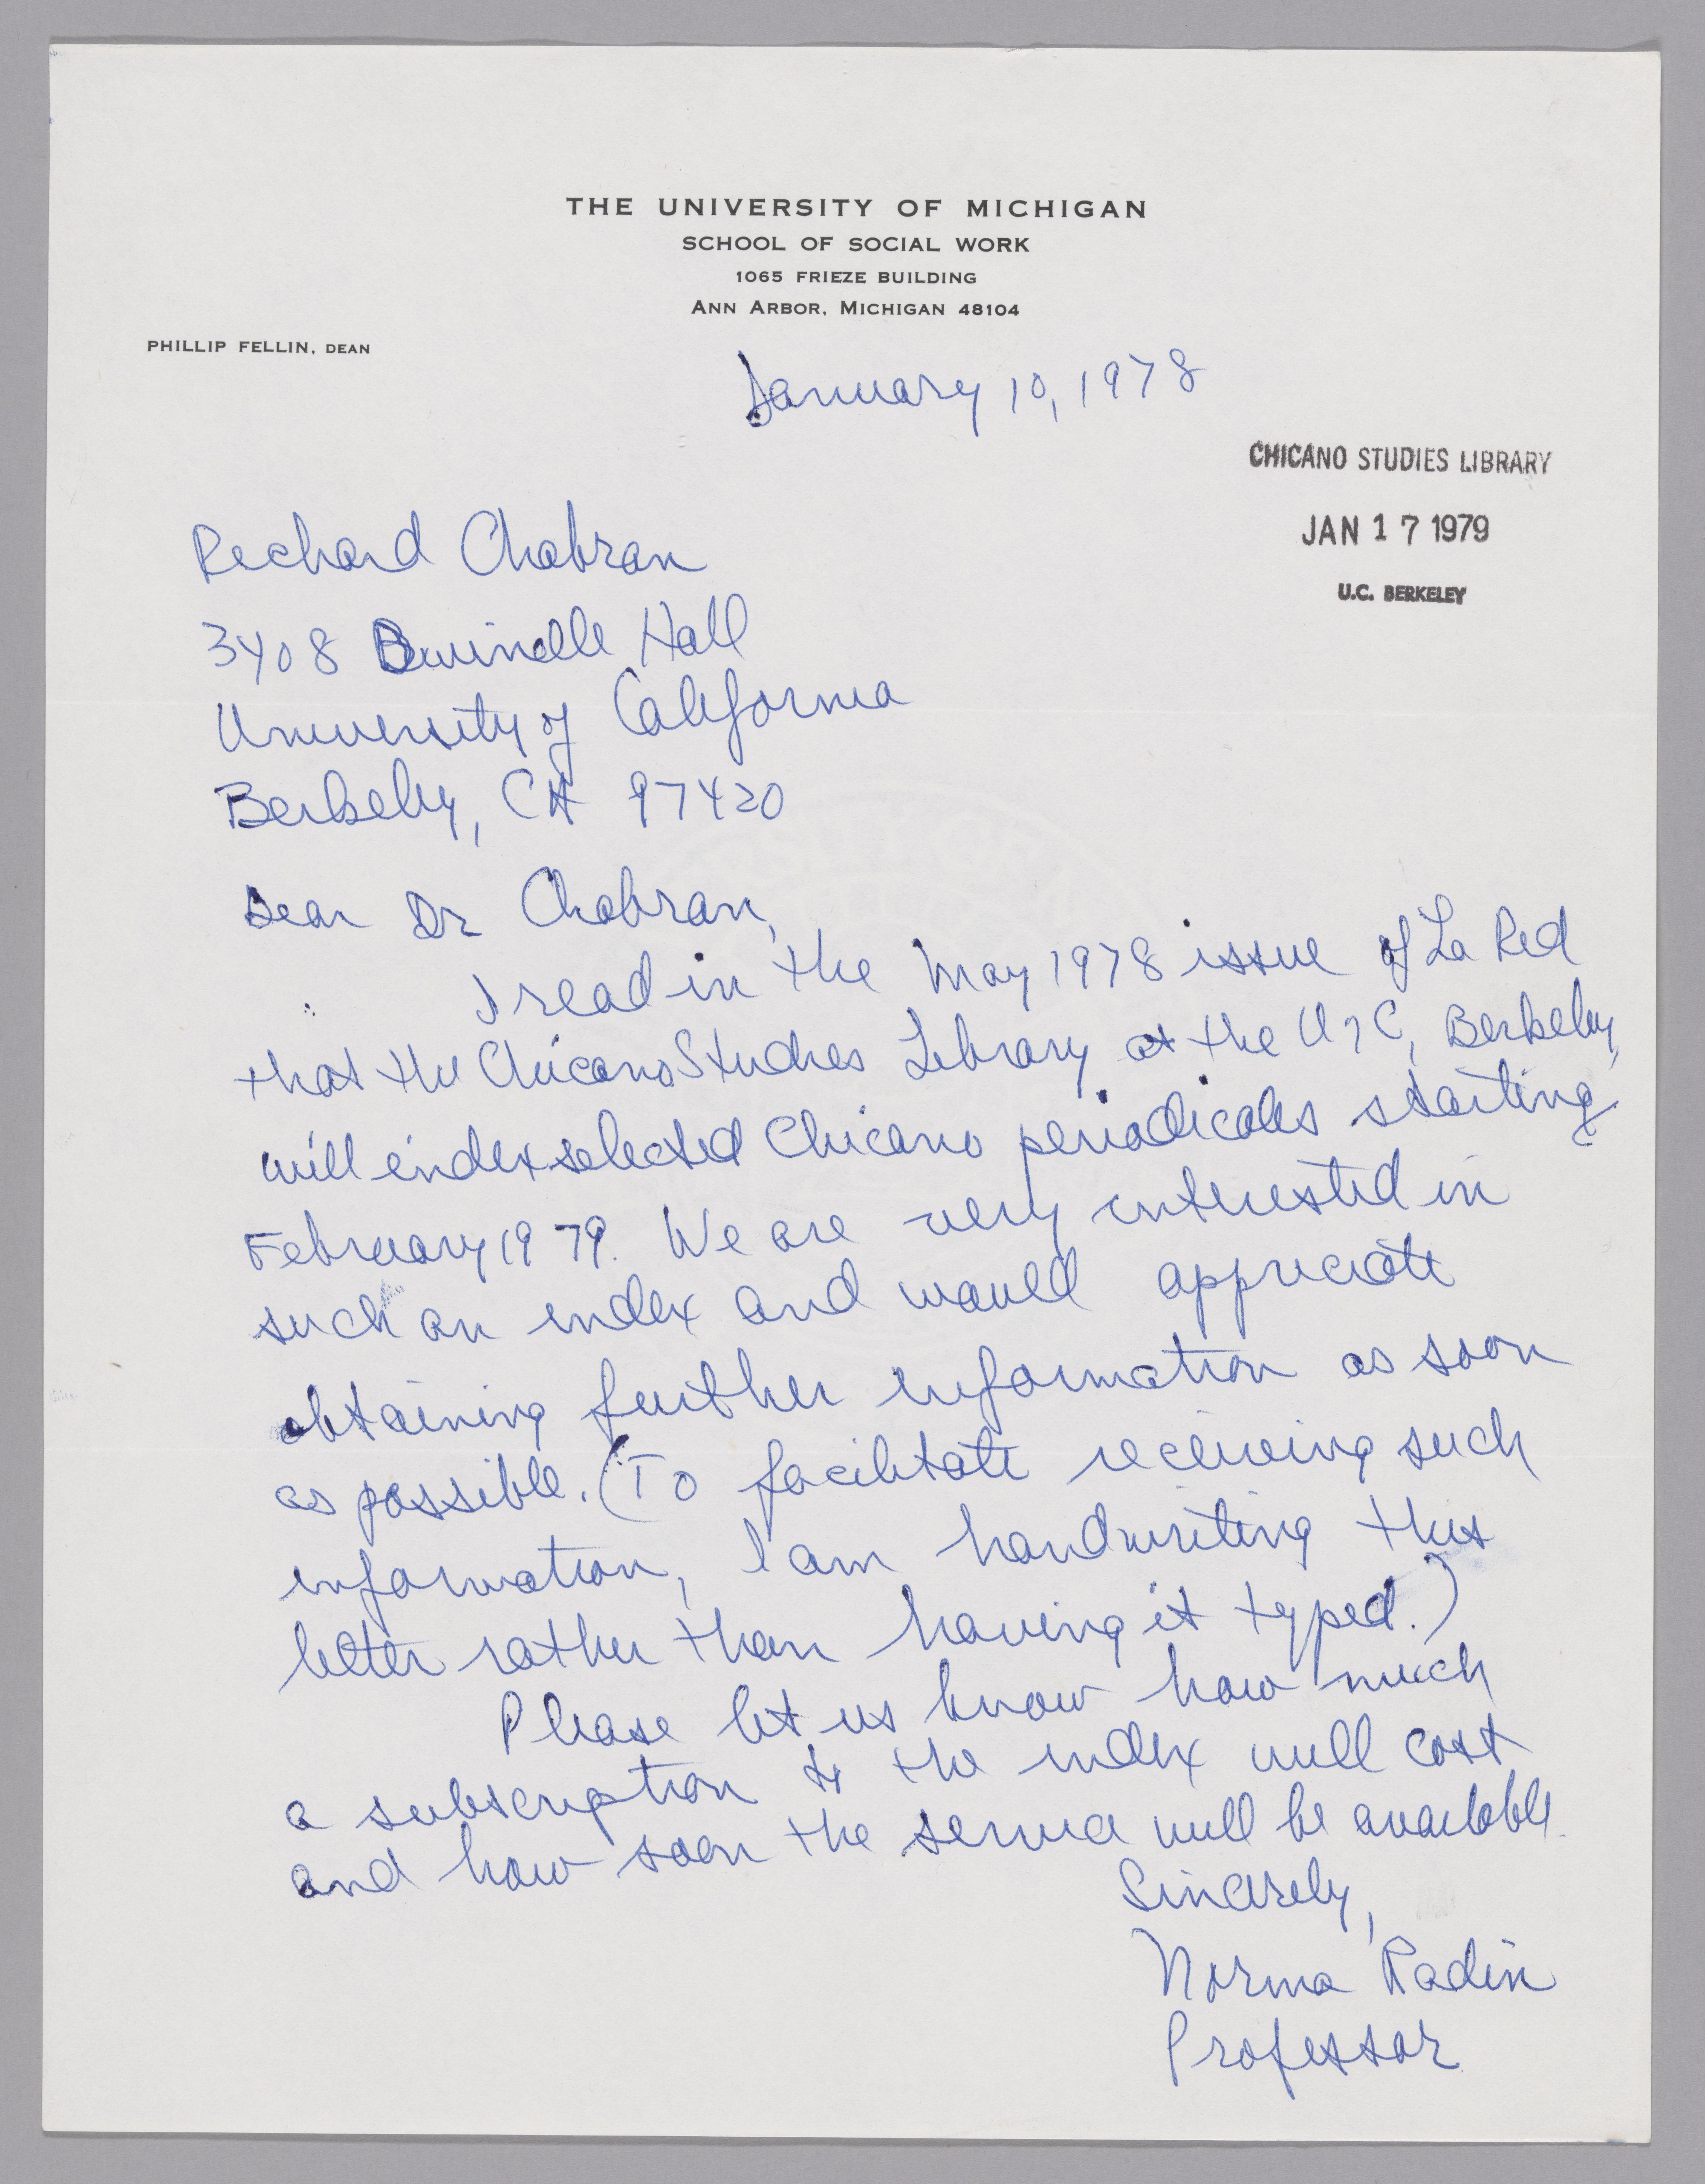 THE UNIVERSITY OF MICHIGAN
SCHOOL OF SOCIAL WORK
1065 FRIEZE BUILDING
ANN ARBOR, MICHIGAN 48104
PHILLIP FELLIN, DEAN
January 10, 1978
CHICANO STUDIES LIBRARY
JAN 17 1979
U.C. BERKELEY
Richard Chabran
3408 Dwinelle Hall
University of California
Berkeley, CA 97420
Dear Dr Chabran,
I read in the May 1978 issue of La Red
that the Chicano Studies Library at the U of C, Berkeley,
will index selected Chicano periodicals starting
February 1979. We are very interested in
such an index and would appreciate
obtaining further information as soon
as possible. (To facilitate receiving such
information, I am handwriting this
letter rather than having it typed.)
Please let us know how much
a subscription to the index will cost
and how soon the service will be available.
Sincerely,
Norma Radin
Professor